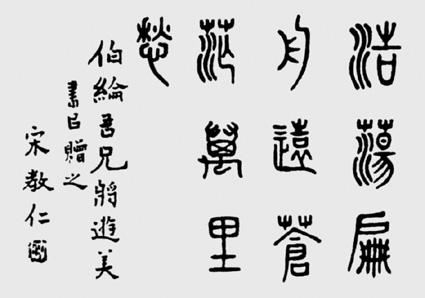 浩蕩扁
舟遠蒼
茫萬里
愁
伯綸吾兄將遊美
書㠯贈之
宋教仁